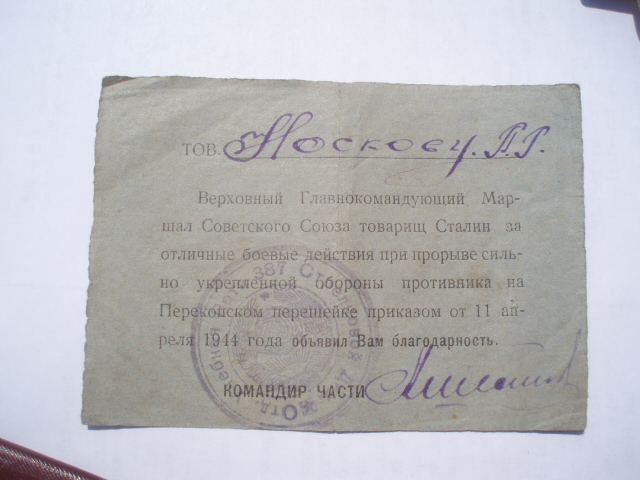 ТОВ. Носкову. П.Г.
Верховный Главнокомандующий Мар-
шал Советского Союза товарищ Сталин за
отличные боевые действия при прорыве силь-
но укрепленной обороны противника на
Перекопском перешейке приказом от 11 ап-
реля 1944 года объявил Вам благодарность.
КОМАНДИР ЧАСТИ
387 Стрелковой